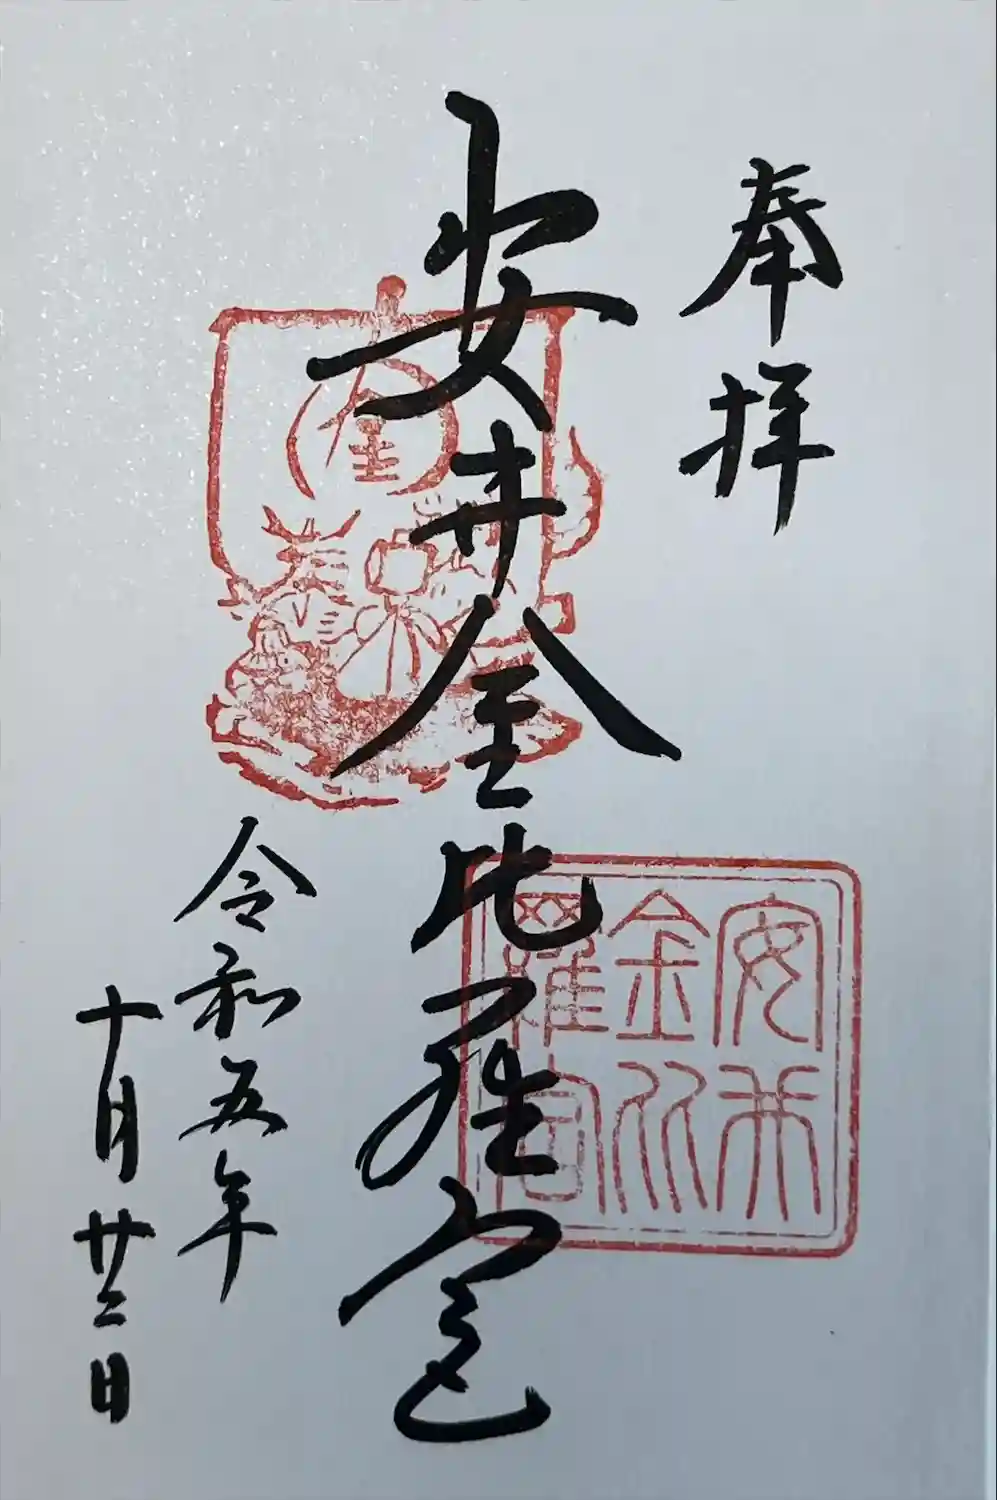 奉拝
安井金比羅宮
安井金比羅宮
金
令和五年
十月廿二日